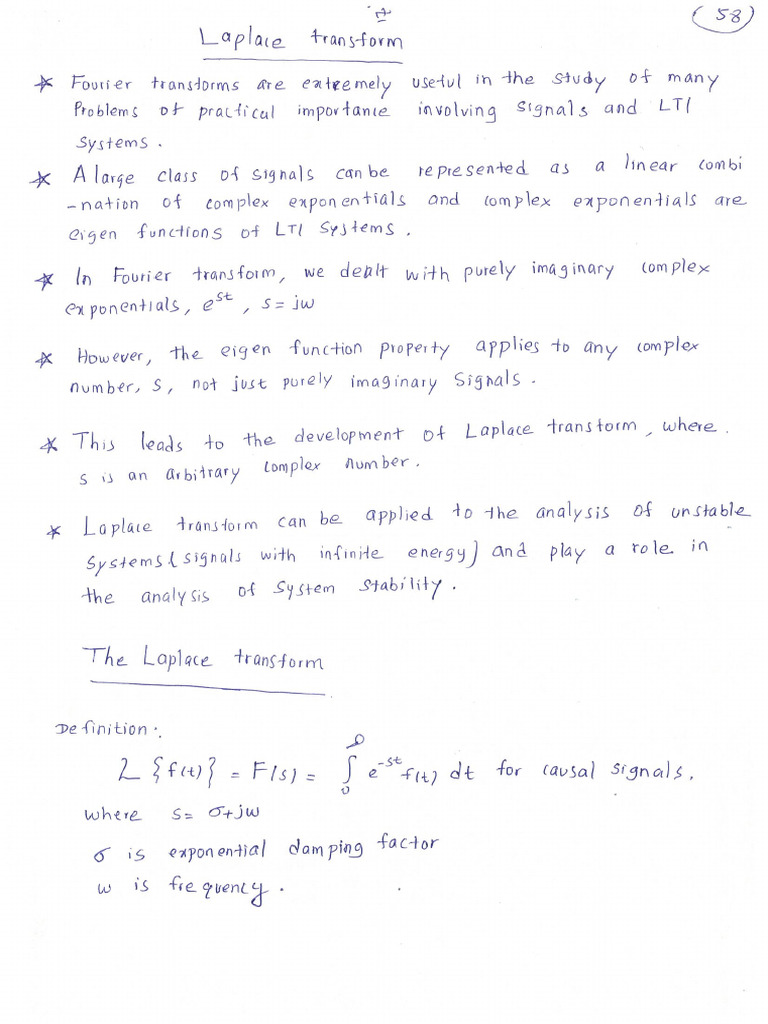 (58)
Laplace transform
* Fourier transforms are extremely useful in the study of many
Problems of practical importance involving signals and LTI
Systems.
* A large class of signals can be represented as a linear combi
-nation of complex exponentials and complex exponentials are
eigen functions of LTI Systems.
* In Fourier transform, we dealt with purely imaginary complex
exponentials, e^st, s = jω
* However, the eigen function property applies to any complex
number, s, not just purely imaginary signals.
* This leads to the development of Laplace transform, where.
s is an arbitrary complex number.
* Laplace transform can be applied to the analysis of unstable
systems (signals with infinite energy) and play a role in
the analysis of system stability.
The Laplace transform
Definition:.
L {f(t)} = F(s) = ∫₀^∞ e^-st f(t) dt for causal signals.
where s = σ+jω
σ is exponential damping factor
ω is frequency.